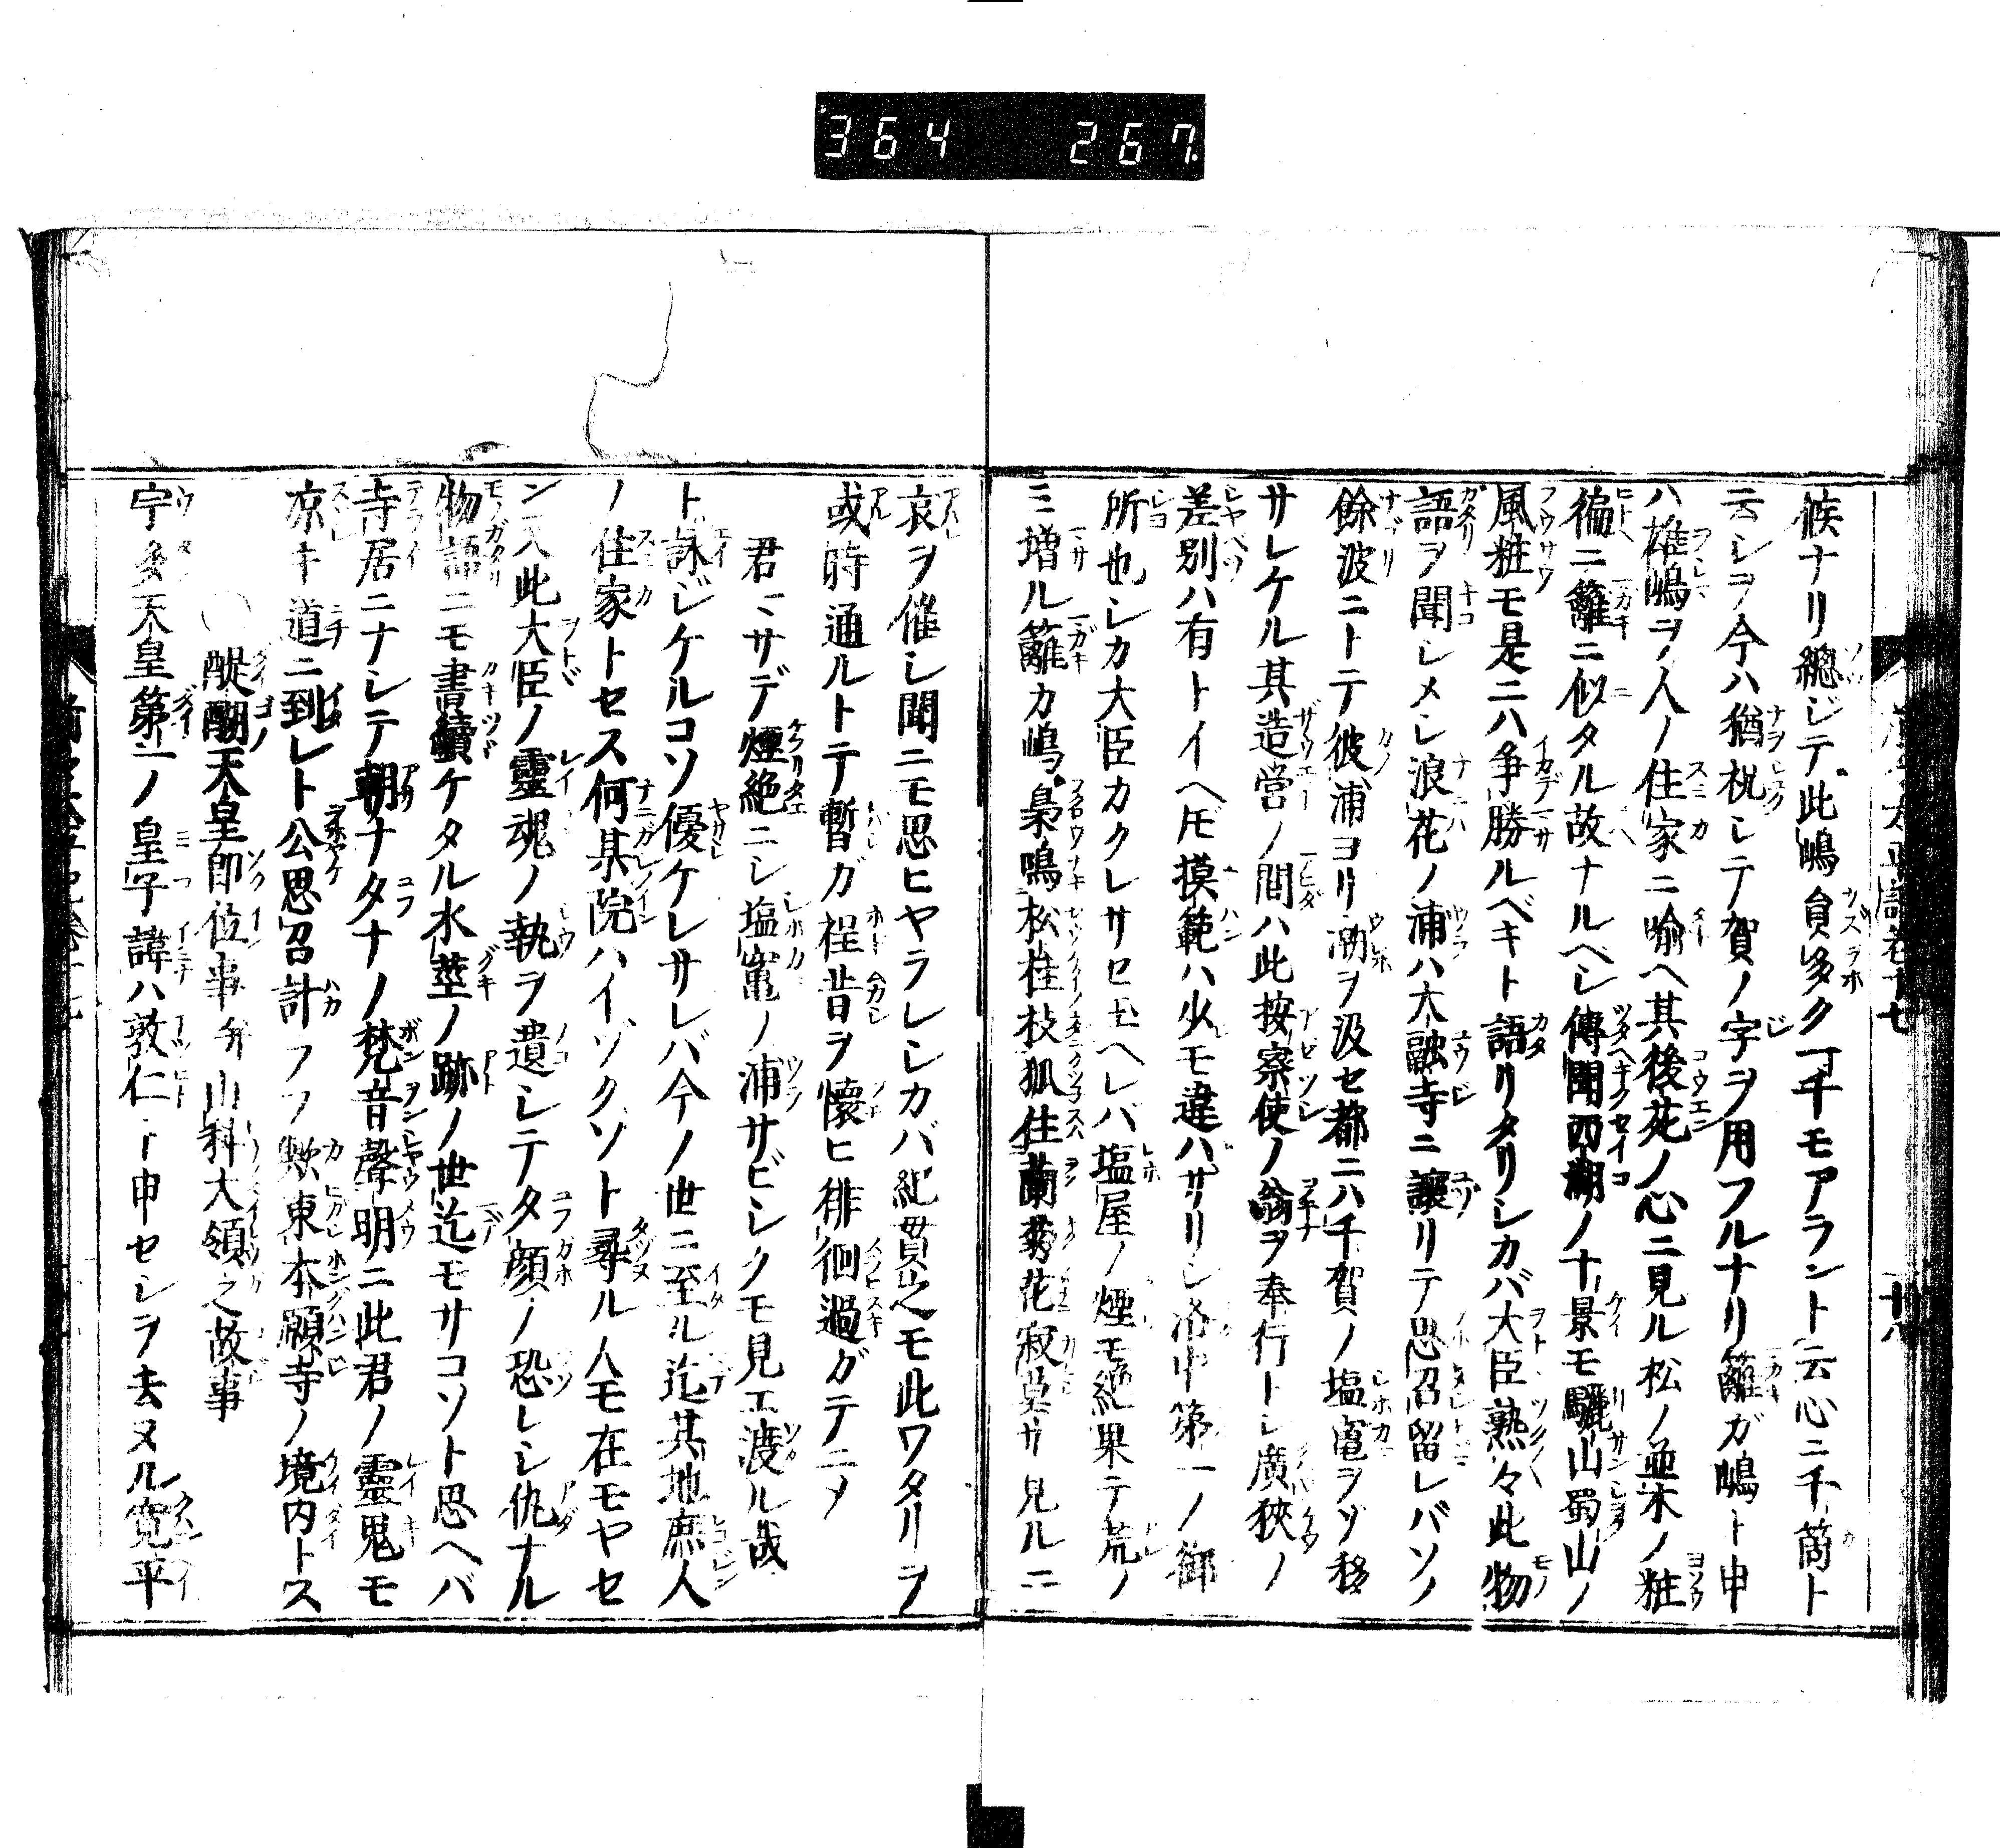 364 267
候ナリ總ジテ此嶋員多クヿ千モアラント云心ニ千箇ト
云シヲ今ハ猶祝シテ賀ノ字ヲ用フルナリ籬ガ嶋ト申
ハ雄嶋ヲ人ノ住家ニ喩ヘ其後苑ノ心ニ見ル松ノ並木ノ粧
徧ニ籬ニ似タル故ナルヘシ傳聞西湖ノ十景モ驪山蜀山ノ
風粧モ是ニハ争勝ルベキト語リタリシカバ大臣熟々此物
語ヲ聞シメシ浪花ノ浦ハ大融寺ニ譲リテ思召留レバソノ
餘波ニトテ彼浦ヨリ潮ヲ汲セ都ニハ千賀ノ塩竃ヲゾ移
サレケル其造営ノ間ハ此按察使ノ翁ヲ奉行トシ廣狹ノ
差別ハ有トイヘ𪜈摸範ハ少モ違ハサリシ洛中第一ノ御
所也シカ大臣カクレサセ玉ヘレバ塩屋ノ煙モ絶果テ荒ノ
ミ増ル籬カ嶋梟鳴松桂枝狐住蘭菊花寂莫サ見ルニ
哀ヲ催シ聞ニモ思ヒヤラレシカバ紀貫之モ此ワタリヲ
或時通ルトテ暫ガ程昔ヲ懷ヒ徘徊過ガテニメ
君マサデ煙絶ニシ塩竃ノ浦サビシクモ見エ渡ル哉
ト詠ジケルコソ優ケレサレバ今ノ世ニ至ル迄其地庶人
ノ住家トセス何某院ハイヅクゾト尋ル人モ在モヤセ
ン又此大臣ノ靈魂ノ執ヲ遺シテタ顔ノ恐レシ仇ナル
物語ニモ書續ケタル水莖ノ跡ノ世迄モサコソト思ヘバ
寺居ニナシテ朝ナタナノ梵音聲明ニ此君ノ靈鬼モ
凉キ道ニ到レト公思召計フフ歟東本願寺ノ境内トス
〇醍醐天皇即位事并山科大領之故事
宇多天皇第一ノ皇子諱ハ敦仁ト申セシヲ去ヌル寛平